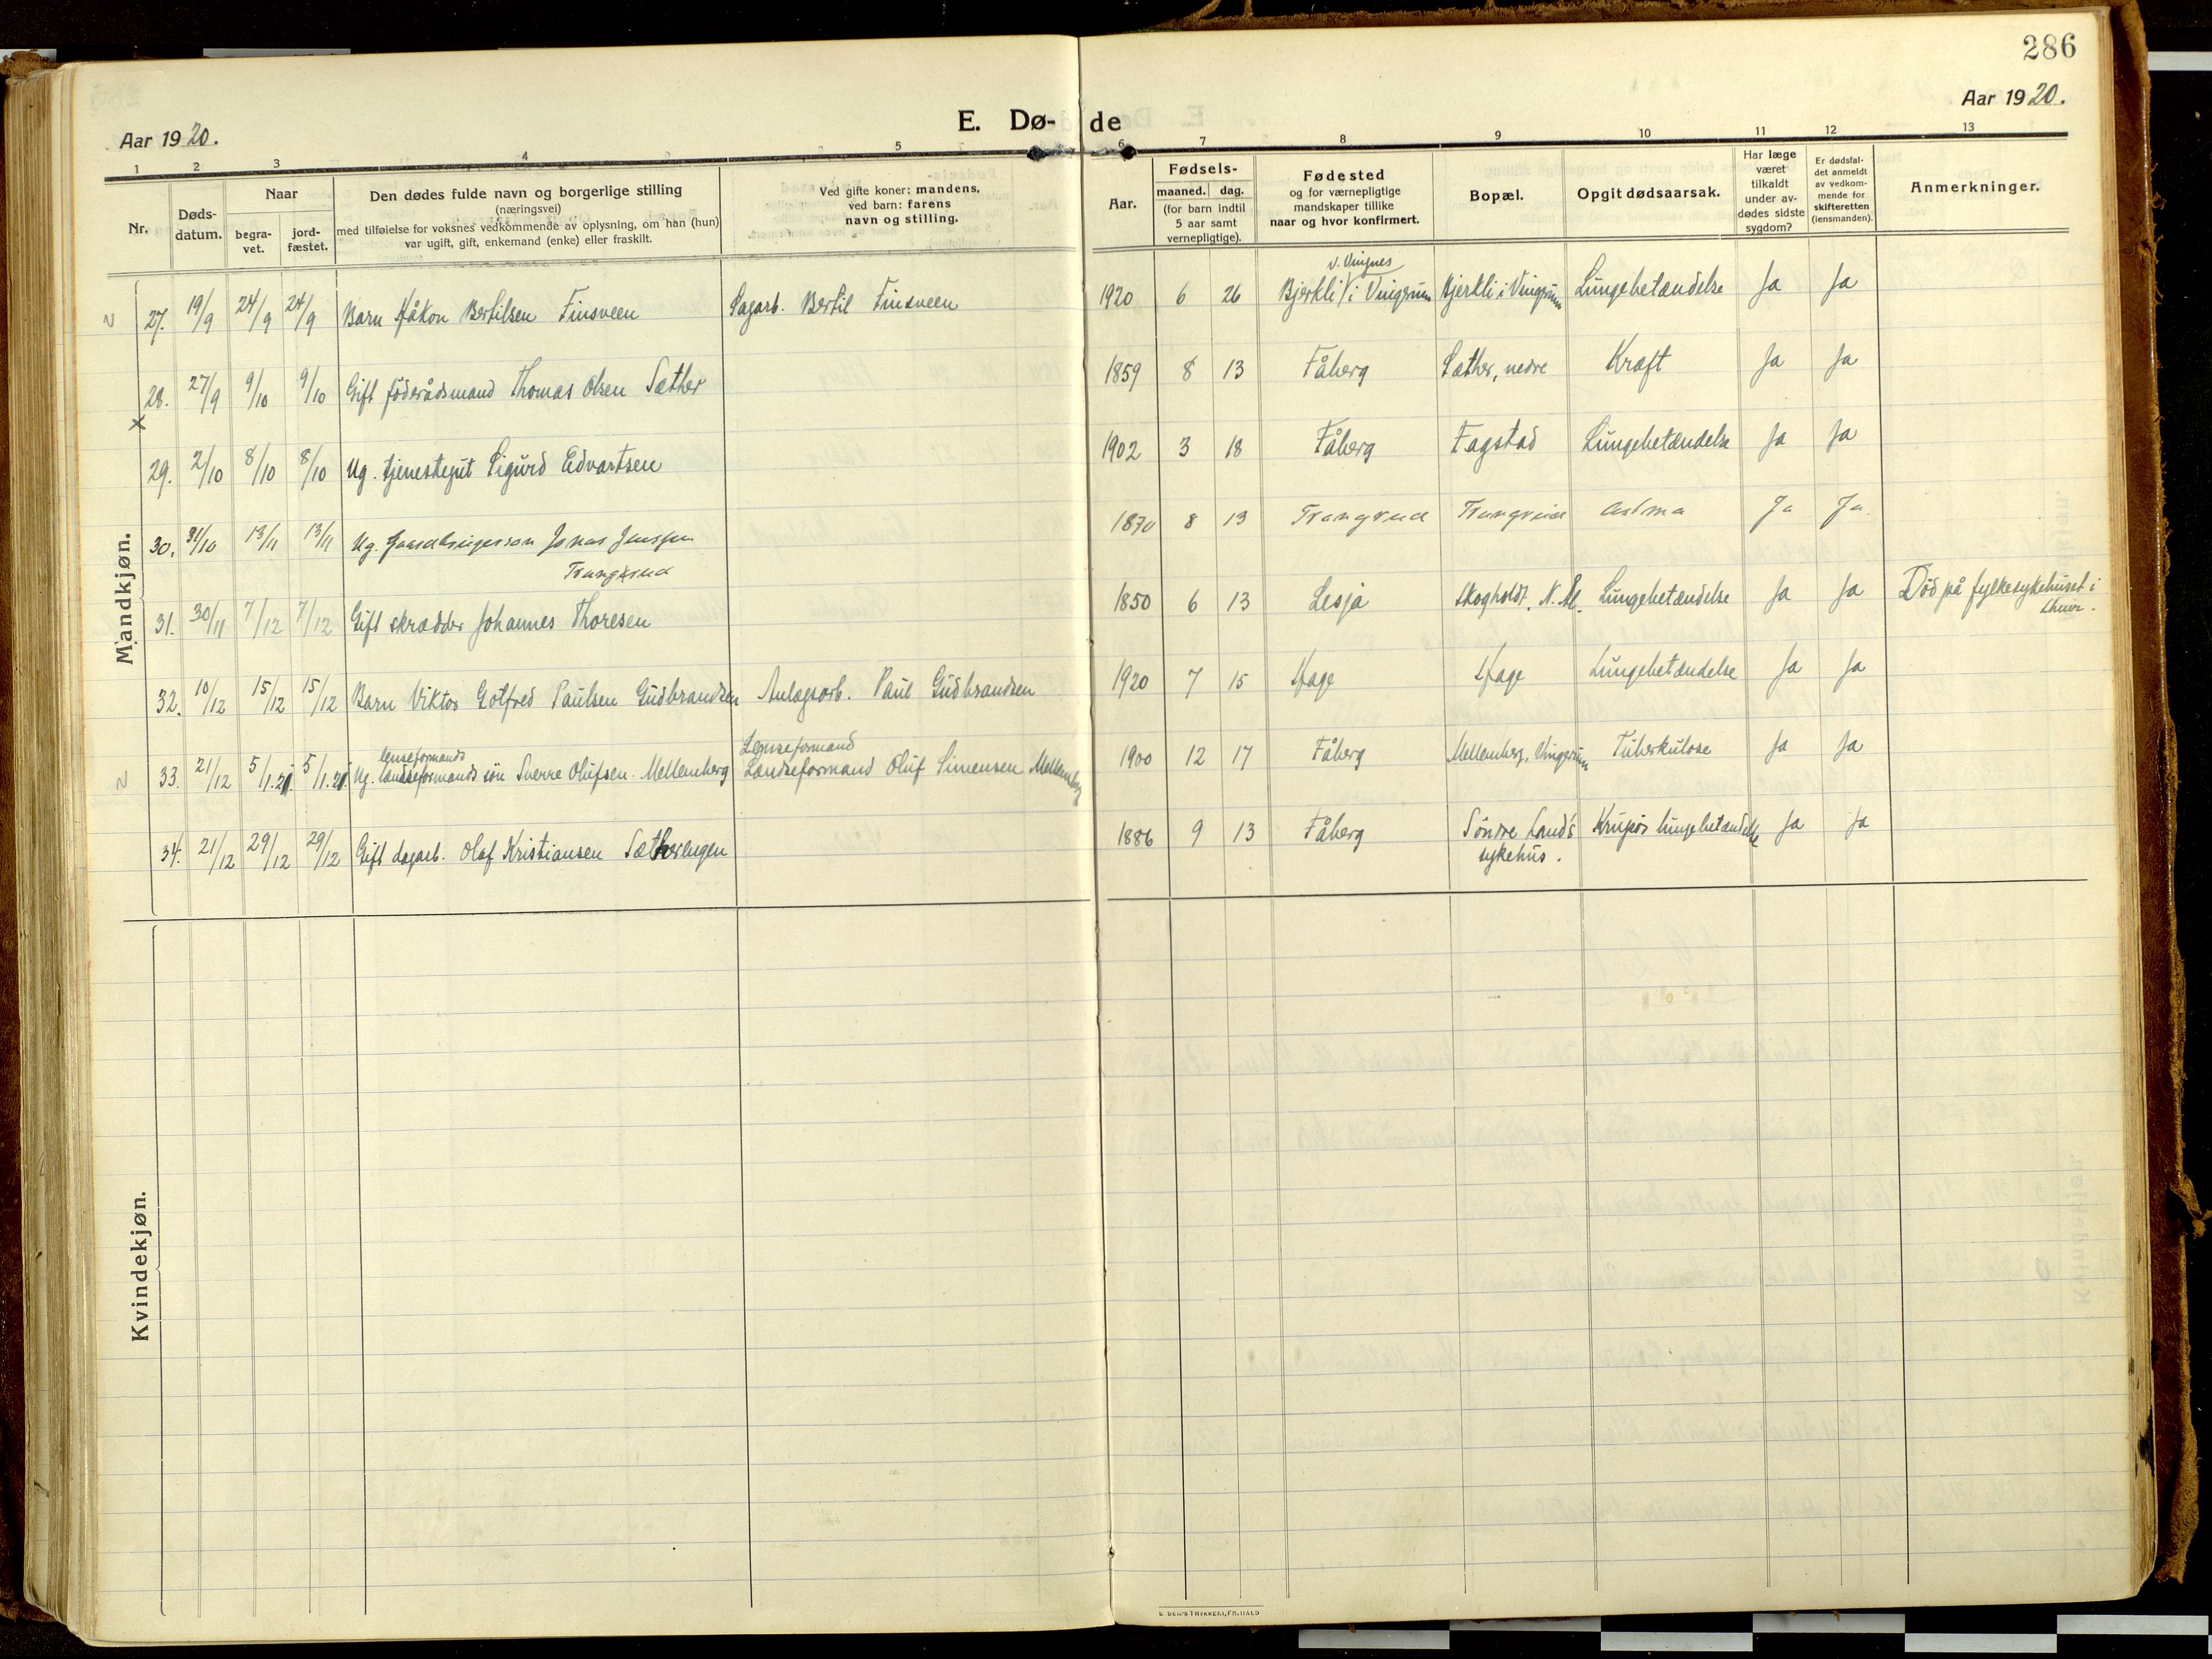 286
Aar 1920.
E. Dø-de
Aar 1920.
1 2 3 4 5 6 7 8 9 10 11 12 13
Nr.
Døds-
datum.
Naar
begra-
vet.
jord-
fæstet.
Den dødes fulde navn og borgerlige stilling
(næringsvei)
med tilføielse for voksnes vedkommende av oplysning, om han (hun)
var ugift, gift, enkemand (enke) eller fraskilt.
Ved gifte koner: mandens,
ved barn: farens
navn og stilling.
Aar.
Fødsels-
maaned. dag.
(for barn indtil
5 aar samt
vernepligtige).
Fødested
og for værnepligtige
mandskaper tillike
naar og hvor konfirmert.
Bopæl.
Opgit dødsaarsak.
Har læge
været
tilkaldt
under av-
dødes sidste
sygdom?
Er dødsfal-
det anmeldt
av vedkom-
mende for
skifteretten
(lensmanden).
Anmerkninger.
Mandkjøn.
v. Vingnes
27. 19/9 24/9 24/9 Barn Håkon Bertilsen Finsveen Sagarb. Bertil Finsveen 1920 6 26 Bjerkli i Vingrum Bjerkli i Vingrum Lungebetændelse Ja Ja
28. 27/9 9/10 9/10 Gift föderådsmand Thomas Olsen Sæther 1859 8 13 Fåberg Sæther, nedre Kræft Ja Ja
x
29. 2/10 8/10 8/10 Ug. tjenestegut Sigurd Edvartsen 1902 3 18 Fåberg Fagstad Lungebetændelse Ja Ja
30. 31/10 13/11 13/11 Ug. Jonas Jenssen 1870 8 13 Trangrud Trangrud Astma Ja Ja
Trangrud
31. 30/11 7/12 7/12 Gift skrædder Johannes Thoresen 1850 6 13 Lesja Skogholdt, N. Ål. Lungebetændelse Ja Ja Död på fylkesykehuset i
32. 10/12 15/12 15/12 Barn Viktor Gotfred Paulsen Gudbrandsen Anlagsarb. Paul Gudbrandsen 1920 7 15 Hage Hage Lungebetændelse Ja Ja
lenseformands Lenseformand
33. 21/12 5/1.21. 5/1.21. Ug. landseformands sön Sverre Olufsen Mellemberg Landseformand Oluf Simensen Mellemberg 1900 12 17 Fåberg Mellemberg, Vingrum Tuberkulose Ja Ja
34. 21/12 29/12 29/12 Gift dagarb. Olaf Kristiansen Sætherengen 1886 9 13 Fåberg Söndre Land's Krupös lungebetændelse Ja Ja
sykehus.
Kvindekjøn.